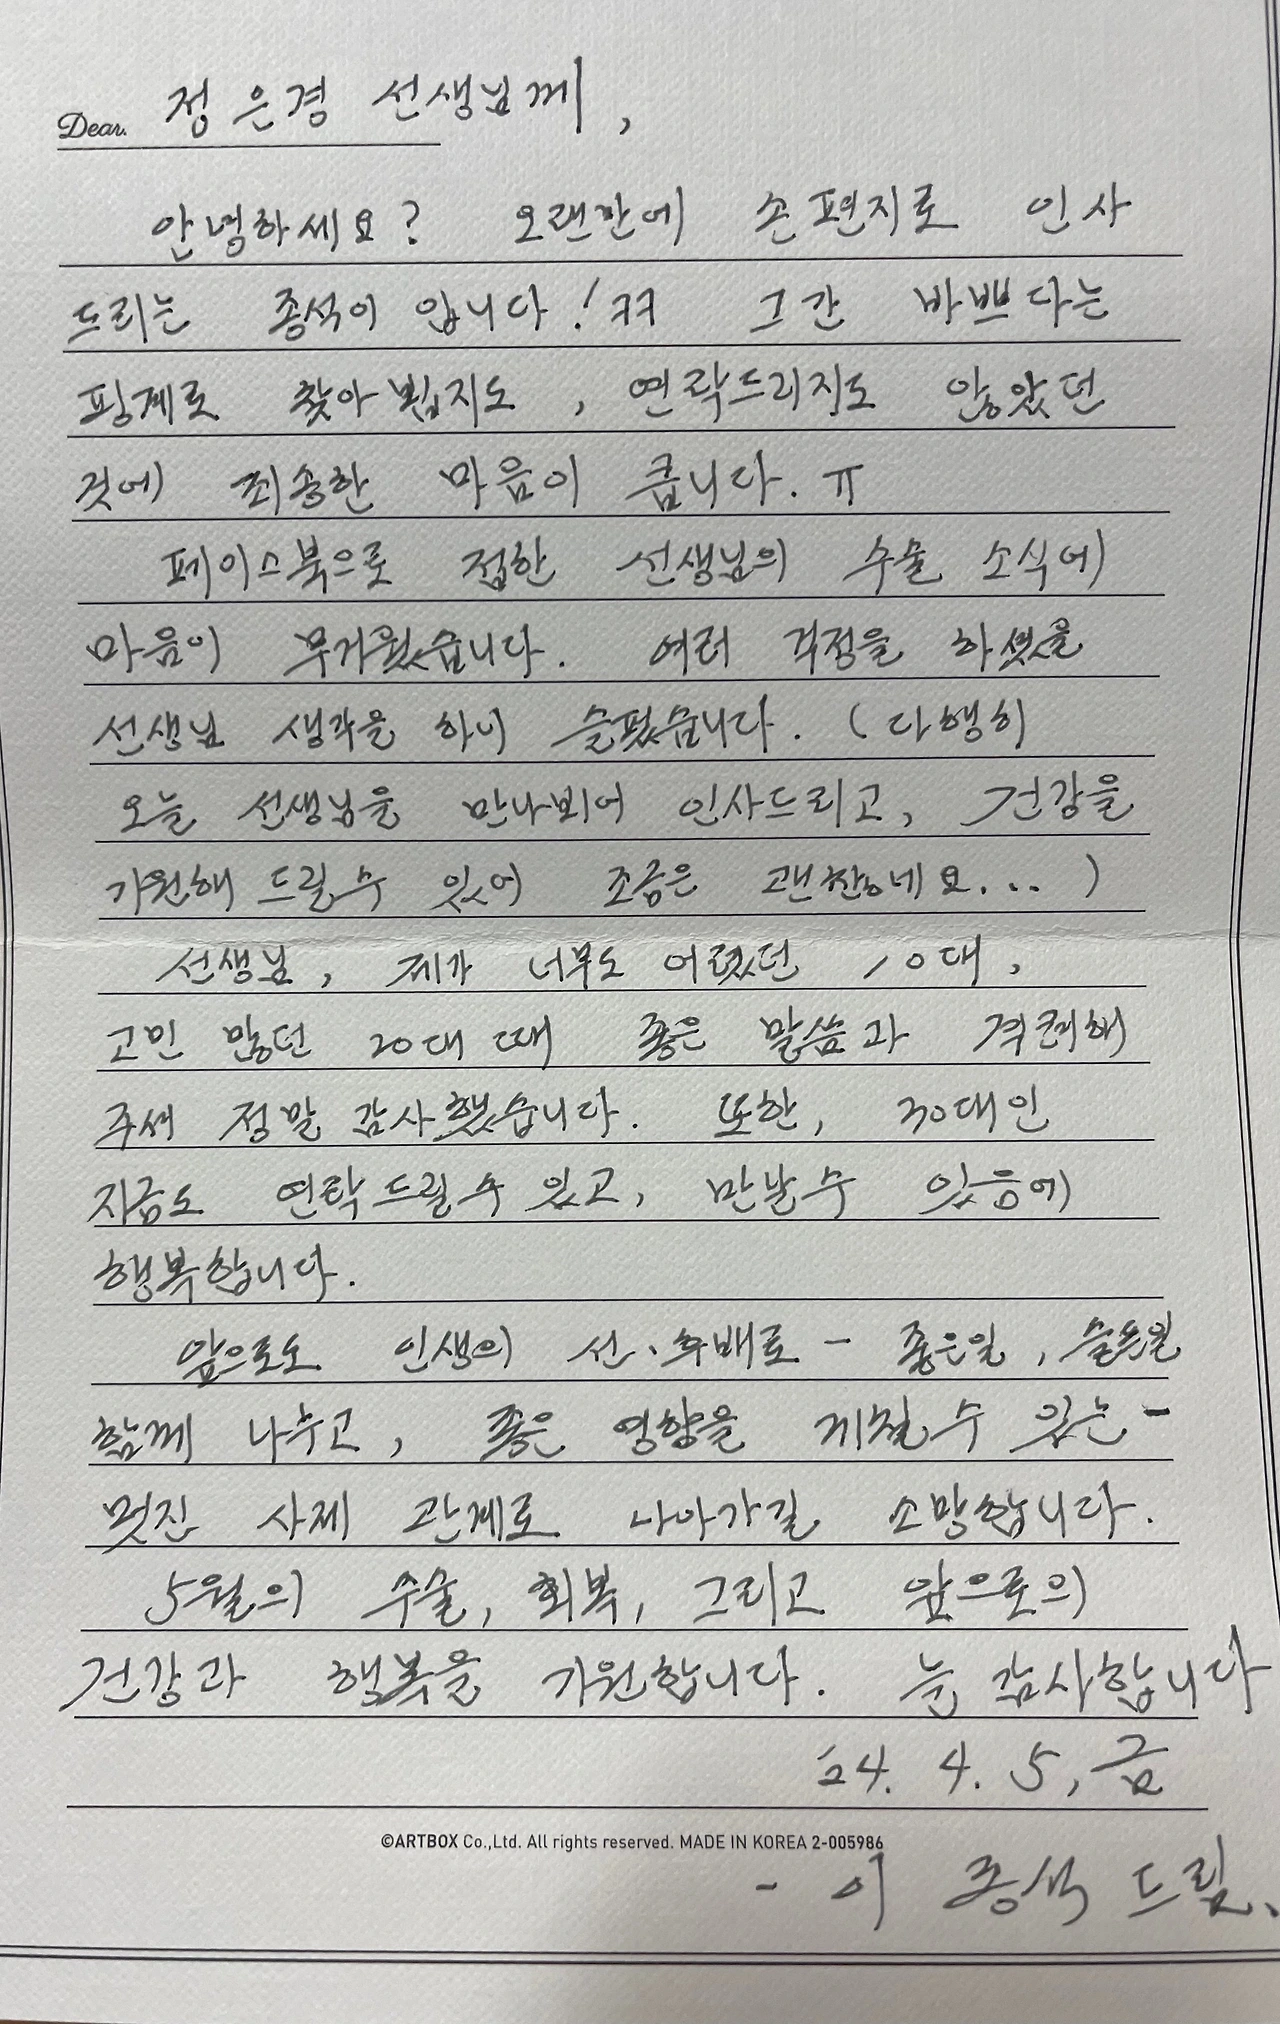 Dear. 정은경 선생님께,
안녕하세요? 오랜만에 손편지로 인사
드리는 종석이 입니다!ㅋㅋ 그간 바쁘다는
핑계로 찾아뵙지도, 연락드리지도 않았던
것에 죄송한 마음이 큽니다. ㅠ
페이스북으로 접한 선생님의 수술 소식에
마음이 무거웠습니다. 여러 걱정을 하셨을
선생님 생각을 하니 슬펐습니다. (다행히
오늘 선생님을 만나뵈어 인사드리고, 건강을
기원해 드릴 수 있어 조금은 괜찮네요...)
선생님, 제가 너무도 어렸던 10대,
고민 많던 20대 때 좋은 말씀과 격려해
주셔 정말 감사했습니다. 또한, 30대인
지금도 연락드릴 수 있고, 만날 수 있음에
행복합니다.
앞으로도 인생의 선·후배로 - 좋은일, 슬픈일
함께 나누고, 좋은 영향을 끼칠 수 있는 -
멋진 사제 관계로 나아가길 소망합니다.
5월의 수술, 회복, 그리고 앞으로의
건강과 행복을 기원합니다. 늘 감사합니다
24. 4. 5, 금
©ARTBOX Co.,Ltd. All rights reserved. MADE IN KOREA 2-005986
- 이종석 드림.